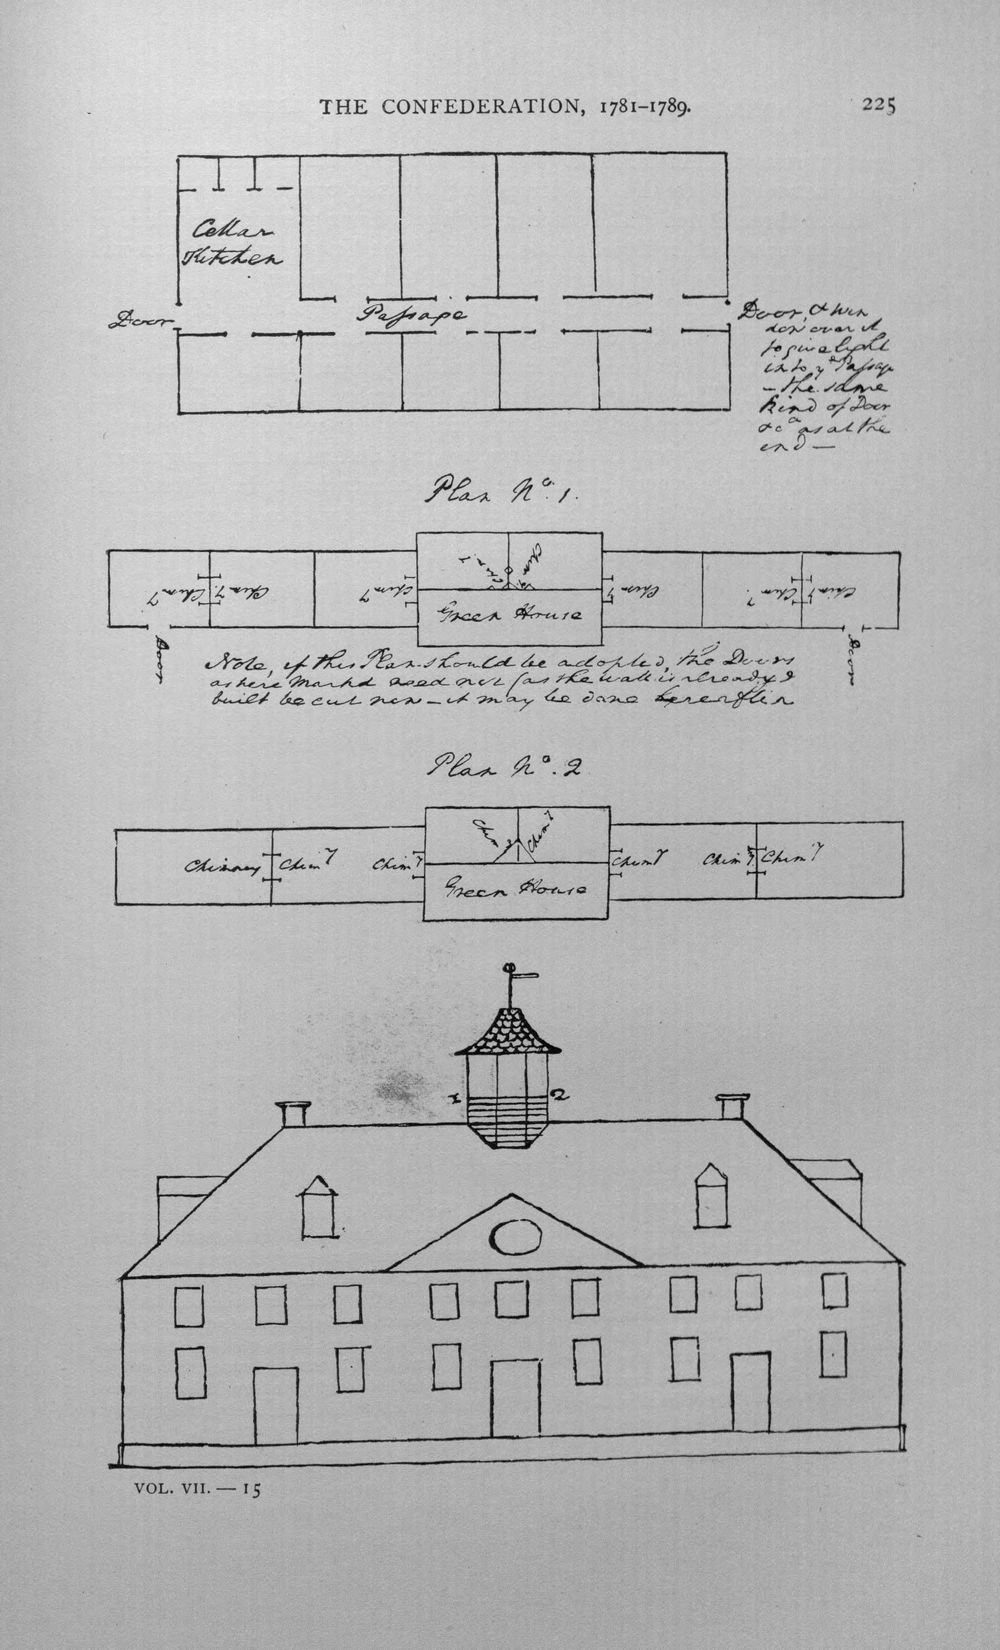 THE CONFEDERATION, 1781–1789.
225
Cellar
Kitchen
Door
Passage
Door, & win
dow over it
to give light
into ye Passage
– the same
kind of Door
&ca as at the
end —
Plan No. 1.
Chimy
Chimy
Chimy
Chimy
Chimy
Chimy
Chimy
Chimy
Chimy
Chimy
Green House
Door
Door
Note, if this Plan should be adopted, the Doors
as here markd need not (as the wall is already
built be cut now — it may be done hereafter
Plan No. 2
Chimy
Chimy
Chimney
Chimy
Chimy
Chimy
Chimy
Chimy
Green House
1
2
VOL. VII. — 15